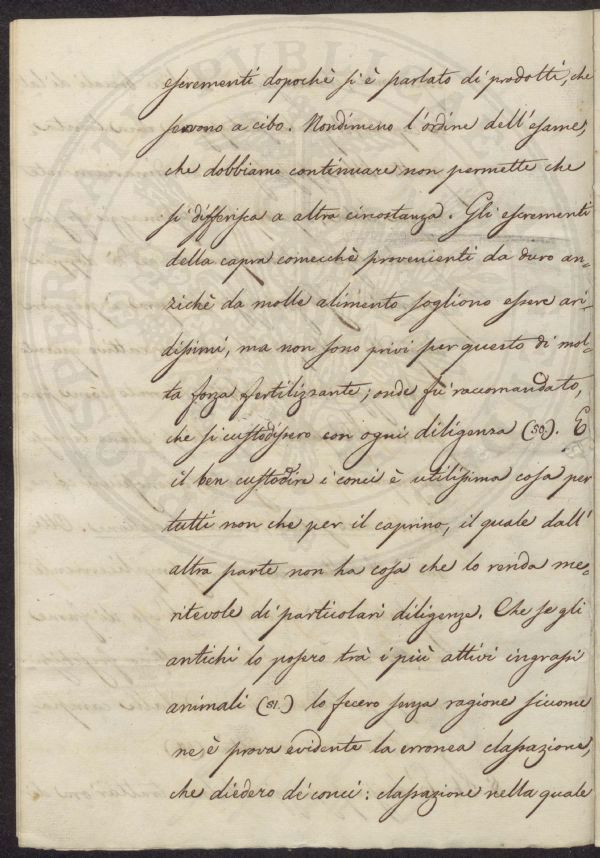 escrementi dopochè si è parlato di prodotti, che
servono a cibo. Nondimeno l'ordine dell'esame,
che dobbiamo continuare non permette che
si differisca a altra circostanza. Gli escrementi
della capra comecchè provenienti da duro an-
zichè da molle alimento sogliono essere ari-
dissimi, ma non sono privi per questo di mol-
ta forza fertilizzante; onde fù raccomandato,
che si custodissero con ogni diligenza (50). E
il ben custodire i conci è utilissima cosa per
tutti non che per il caprino, il quale dall'
altra parte non ha cosa che lo renda me-
ritevole di particolari diligenze. Che se gli
antichi lo posero trà i più attivi ingrassi
animali (51.) lo fecero senza ragione siccome
ne è prova evidente la erronea classazione,
che diedero de' conci: classazione nella quale